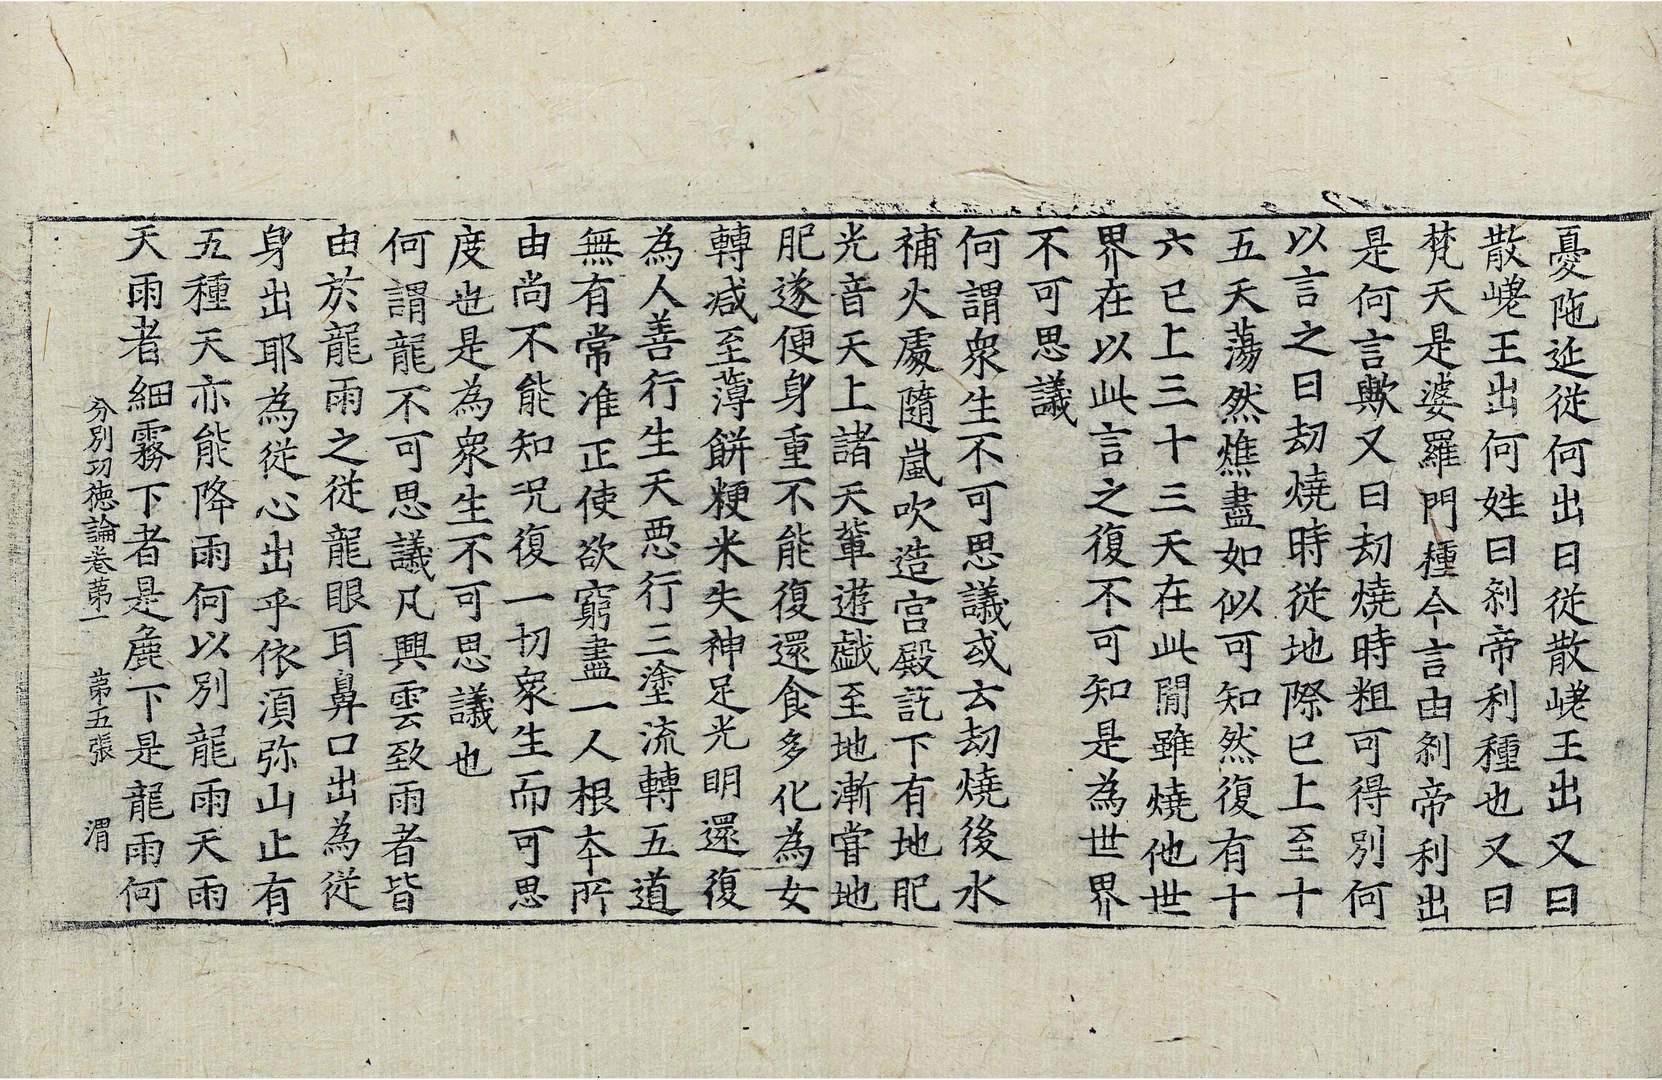 憂陁延從何出曰從散嵯王出又曰
散嵯王出何姓曰刹帝利種也又曰
梵天是婆羅門種今言由刹帝利出
是何言歟又曰劫燒時粗可得別何
以言之曰劫燒時從地際已上至十
五天蕩然燋盡如似可知然復有十
六已上三十三天在此閒雖燒他世
界在以此言之復不可知是為世界
不可思議
何謂衆生不可思議或云劫燒後水
補火處隨嵐吹造宫殿訖下有地肥
光音天上諸天輩遊戲至地漸甞地
肥遂便身重不能復還食多化為女
轉減至薄餅粳米失神足光明還復
為人善行生天悪行三塗流轉五道
無有常准正使欲窮盡一人根本所
由尚不能知况復一切衆生而可思
度也是為衆生不可思議也
何謂龍不可思議凡興雲致雨者皆
由於龍雨之從龍眼耳鼻口出為從
身出耶為從心出乎依湏弥山止有
五種天亦能降雨何以別龍雨天雨
天雨者細霧下者是麁下是龍雨何
分別功徳論卷苐一 苐五張 渭